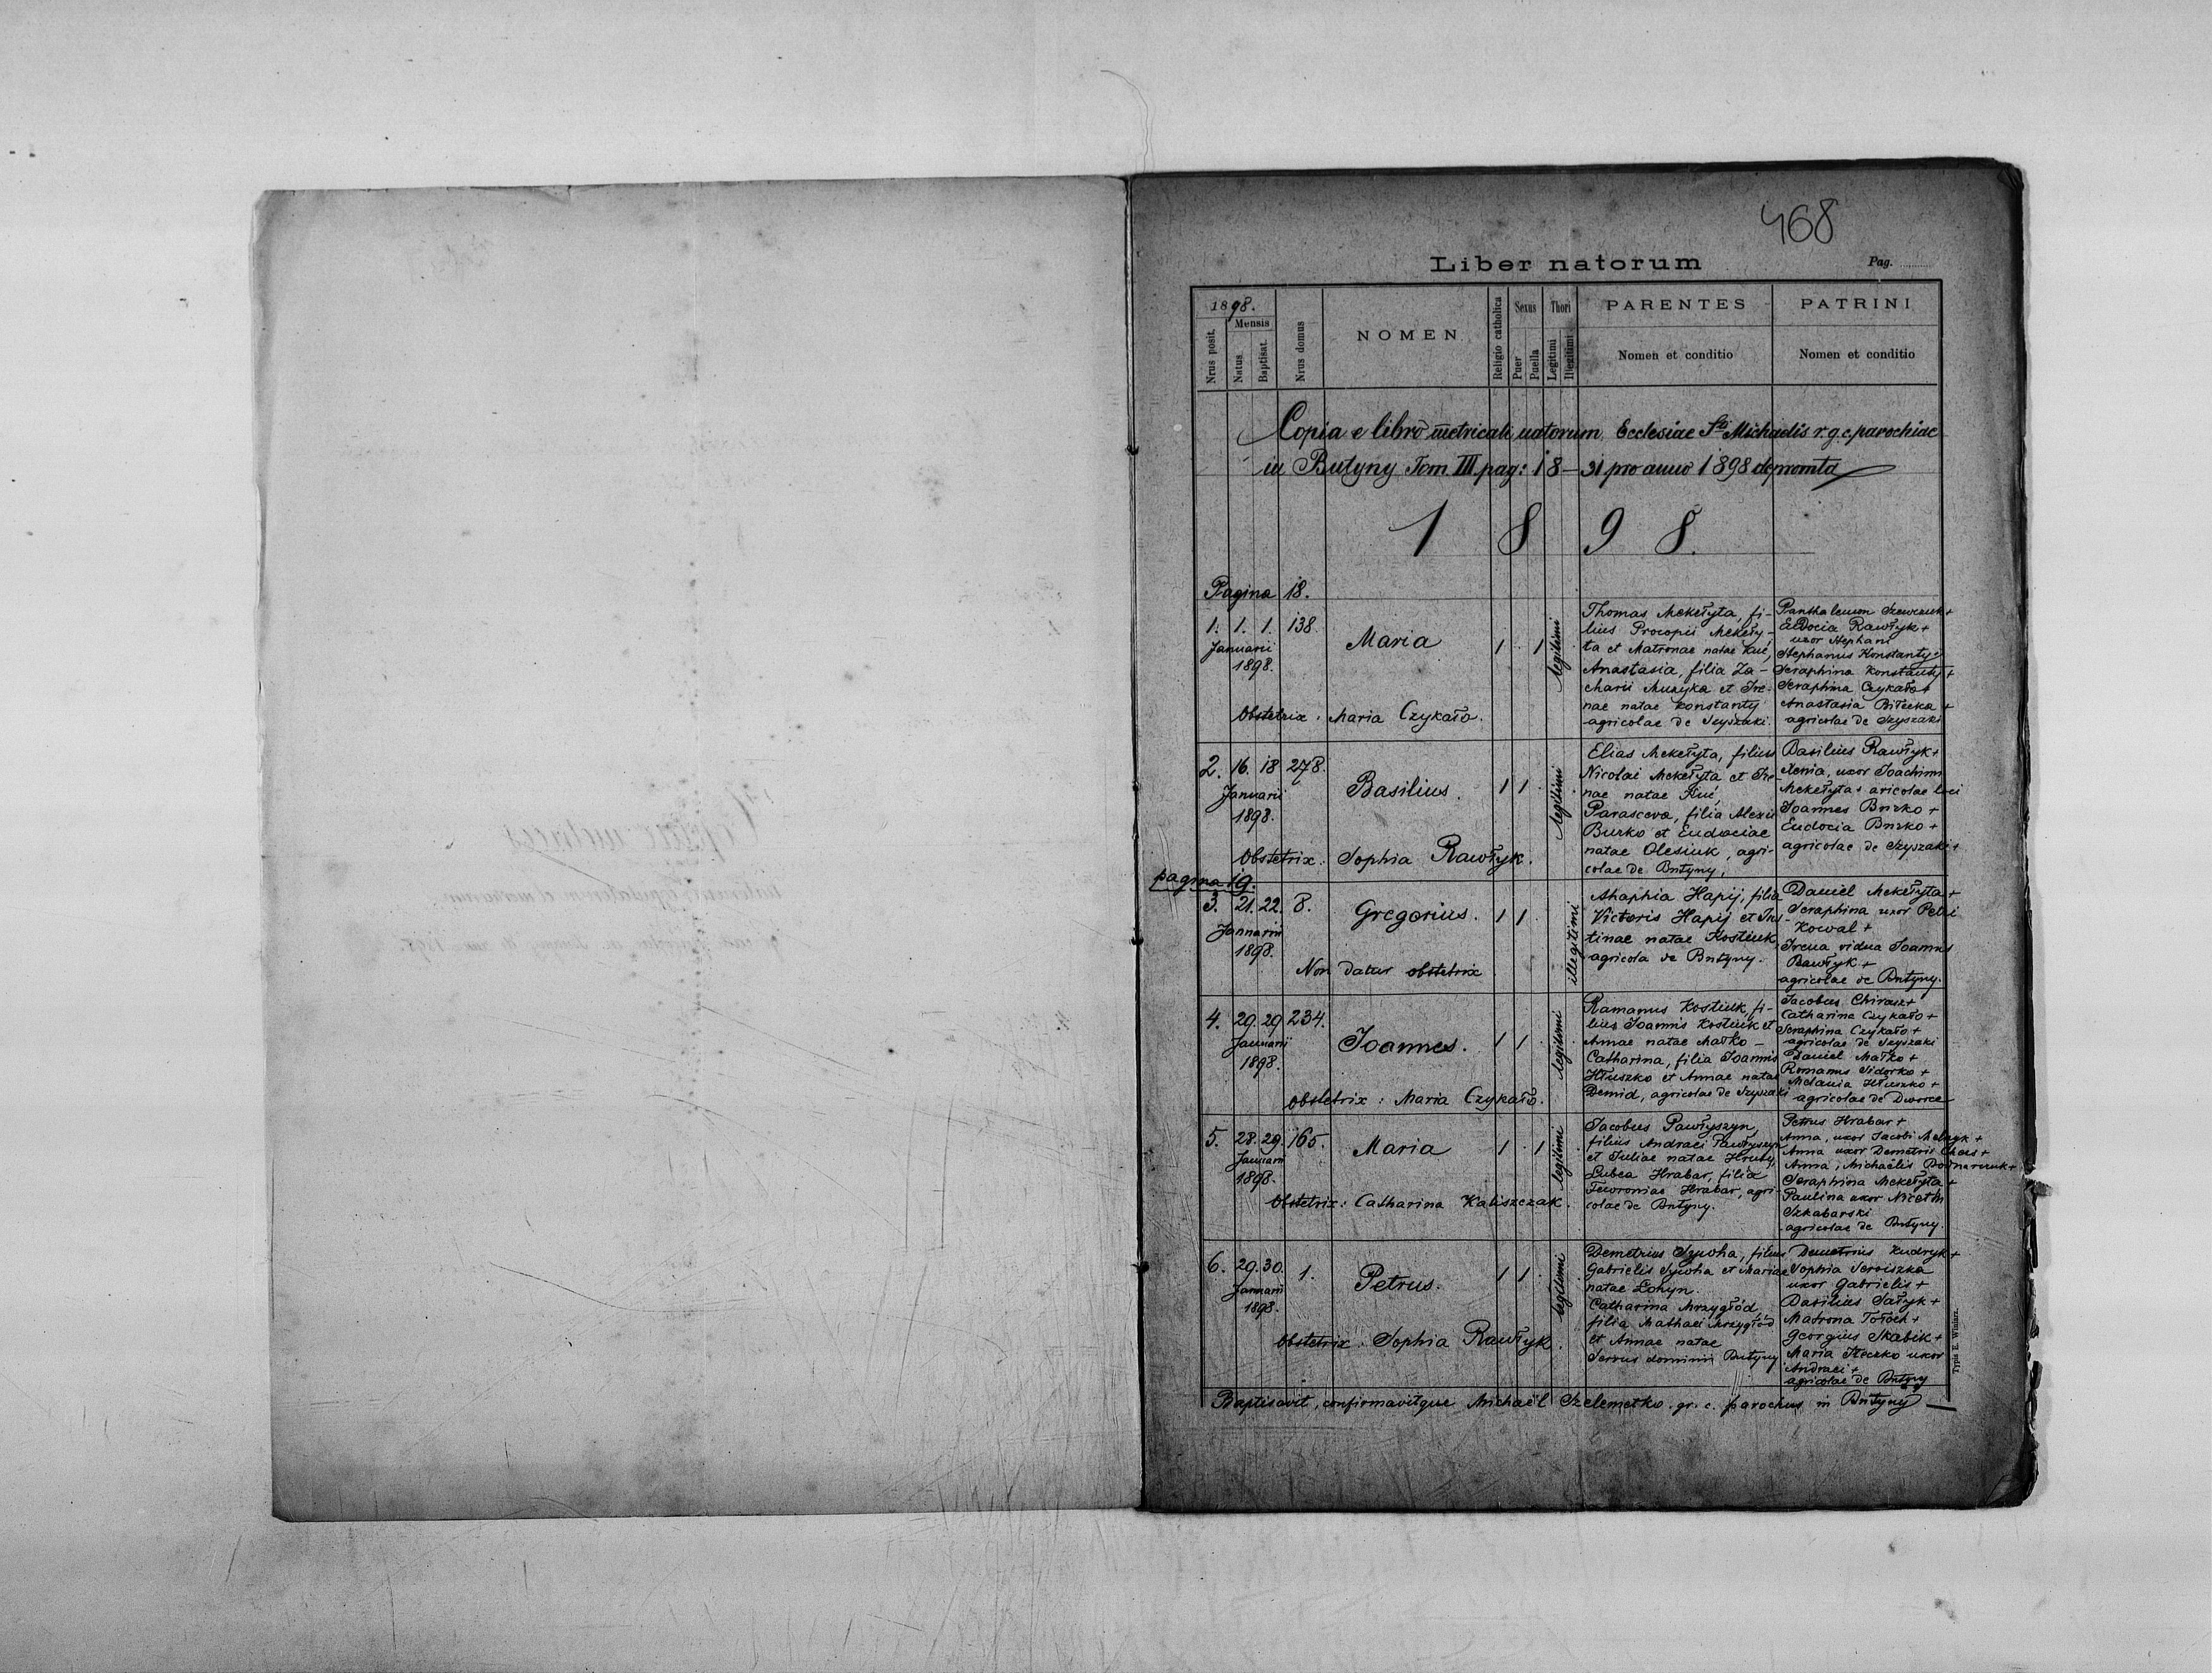 468
Liber natorum
Pag.
1898.
Mensis
Nrus posit.
Natus
Baptisat.
Nrus domus
NOMEN
Religio catholica
Sexus
Puer
Puella
Thori
Legitimi
Illegitimi
PARENTES
Nomen et conditio
PATRINI
Nomen et conditio
Copia e libro metricali natorum Ecclesiae Sti Michaelis r. g. c. parochiae
in Butyny Tom. III pag: 18–31 pro anno 1898 depromta
1898.
Pagina 18.
1. 1. 1. 138.
Januarii
1898.
Maria
1 1
legitimi
Thomas Mekełyta, fi-
lius Procopii Mekeły-
ta et Matronae natae Kuć,
Anastasia, filia Za-
charii Muzyka et Ire-
nae natae Konstanty
agricolae de Szyszaki.
Panthalemon Szewczuk +
Eudocia Rawłyk +
uxor Stephani
Stephanus Konstanty +
Seraphina Konstanty +
Seraphina Czykało +
Anastasia Biłecka +
agricolae de Szyszaki
Obstetrix: Maria Czykało.
2. 16. 18 278.
Januarii
1898.
Basilius.
1 1
legitimi
Elias Mekełyta, filius
Nicolai Mekełyta et Ire-
nae natae Kuć,
Parasceva, filia Alexii
Burko et Eudociae
natae Olesiuk, agri-
colae de Butyny,
Basilius Rawłyk +
Xenia, uxor Joachimi
Mekełyta + aricolae loci
Joannes Burko +
Eudocia Burko +
agricolae de Szyszaki +
Obstetrix: Sophia Rawłyk.
pagina 19.
3. 21. 22. 8.
Januarii
1898.
Gregorius.
1 1
illegitimi
Ahaphia Hapij, filia
Victoris Hapij et Jus-
tinae natae Kostiuk,
agricola de Butyny.
Daniel Mekełyta +
Seraphina uxor Petri
Kowal +
Irena vidua Joannis
Rawłyk +
agricolae de Butyny.
Non datur obstetrix
4. 29. 29 234.
Januarii
1898.
Joannes.
1 1
legitimi
Ramanus Kostiuk, fi-
lius Joannis Kostiuk et
Annae natae Małko –
Catharina, filia Joannis
Hłuszko et Annae natae
Demid, agricolae de Szyszaki
Jacobus Chirasz +
Catharina Czykało +
Seraphina Czykało +
agricolae de Szyszaki
Daniel Małko +
Romanus Sidorko +
Melania Hłuszko +
agricolae de Dworce
obstetrix: Maria Czykało.
5. 28. 29. 165.
Januarii
1898.
Maria
1 1
legitimi
Jacobus Pawłyszyn,
filius Andraei Pawłyszyn
et Juliae natae Hruby,
Lubea Hrabar, filia
Fewroniae Hrabar, agri-
colae de Butyny.
Petrus Hrabar +
Anna, uxor Jacobi Melnyk +
Anna uxor Demetrii +
Anna, Michaëlis Bodnarczuk +
Seraphina Mekełyta +
Paulina uxor
Szkabarski
agricolae de Butyny.
Obstetrix: Catharina Kaliszczak.
6. 29. 30. 1.
Januarii
1898.
Petrus.
1 1
legitimi
Demetrius Sywoha, filius
Gabrielis Sywoha et Mariae
natae Lohyn.
Catharina Mrzygłód,
filia Mathaei Mrzygłód
et Annae natae
Servus dominii Butyny
Demetrius Kudryk +
Sophia Serwiszka
uxor Gabrielis +
Basilius Sałyk +
Matrona Tołoch +
Georgius Skabik +
Maria uxor
Andraei +
agricolae de Butyny
Obstetrix: Sophia Rawłyk.
Baptisavit, confirmavitque Michaël Szelemetko. gr. c. parochus in Butyny
Typis E. Winiarz.